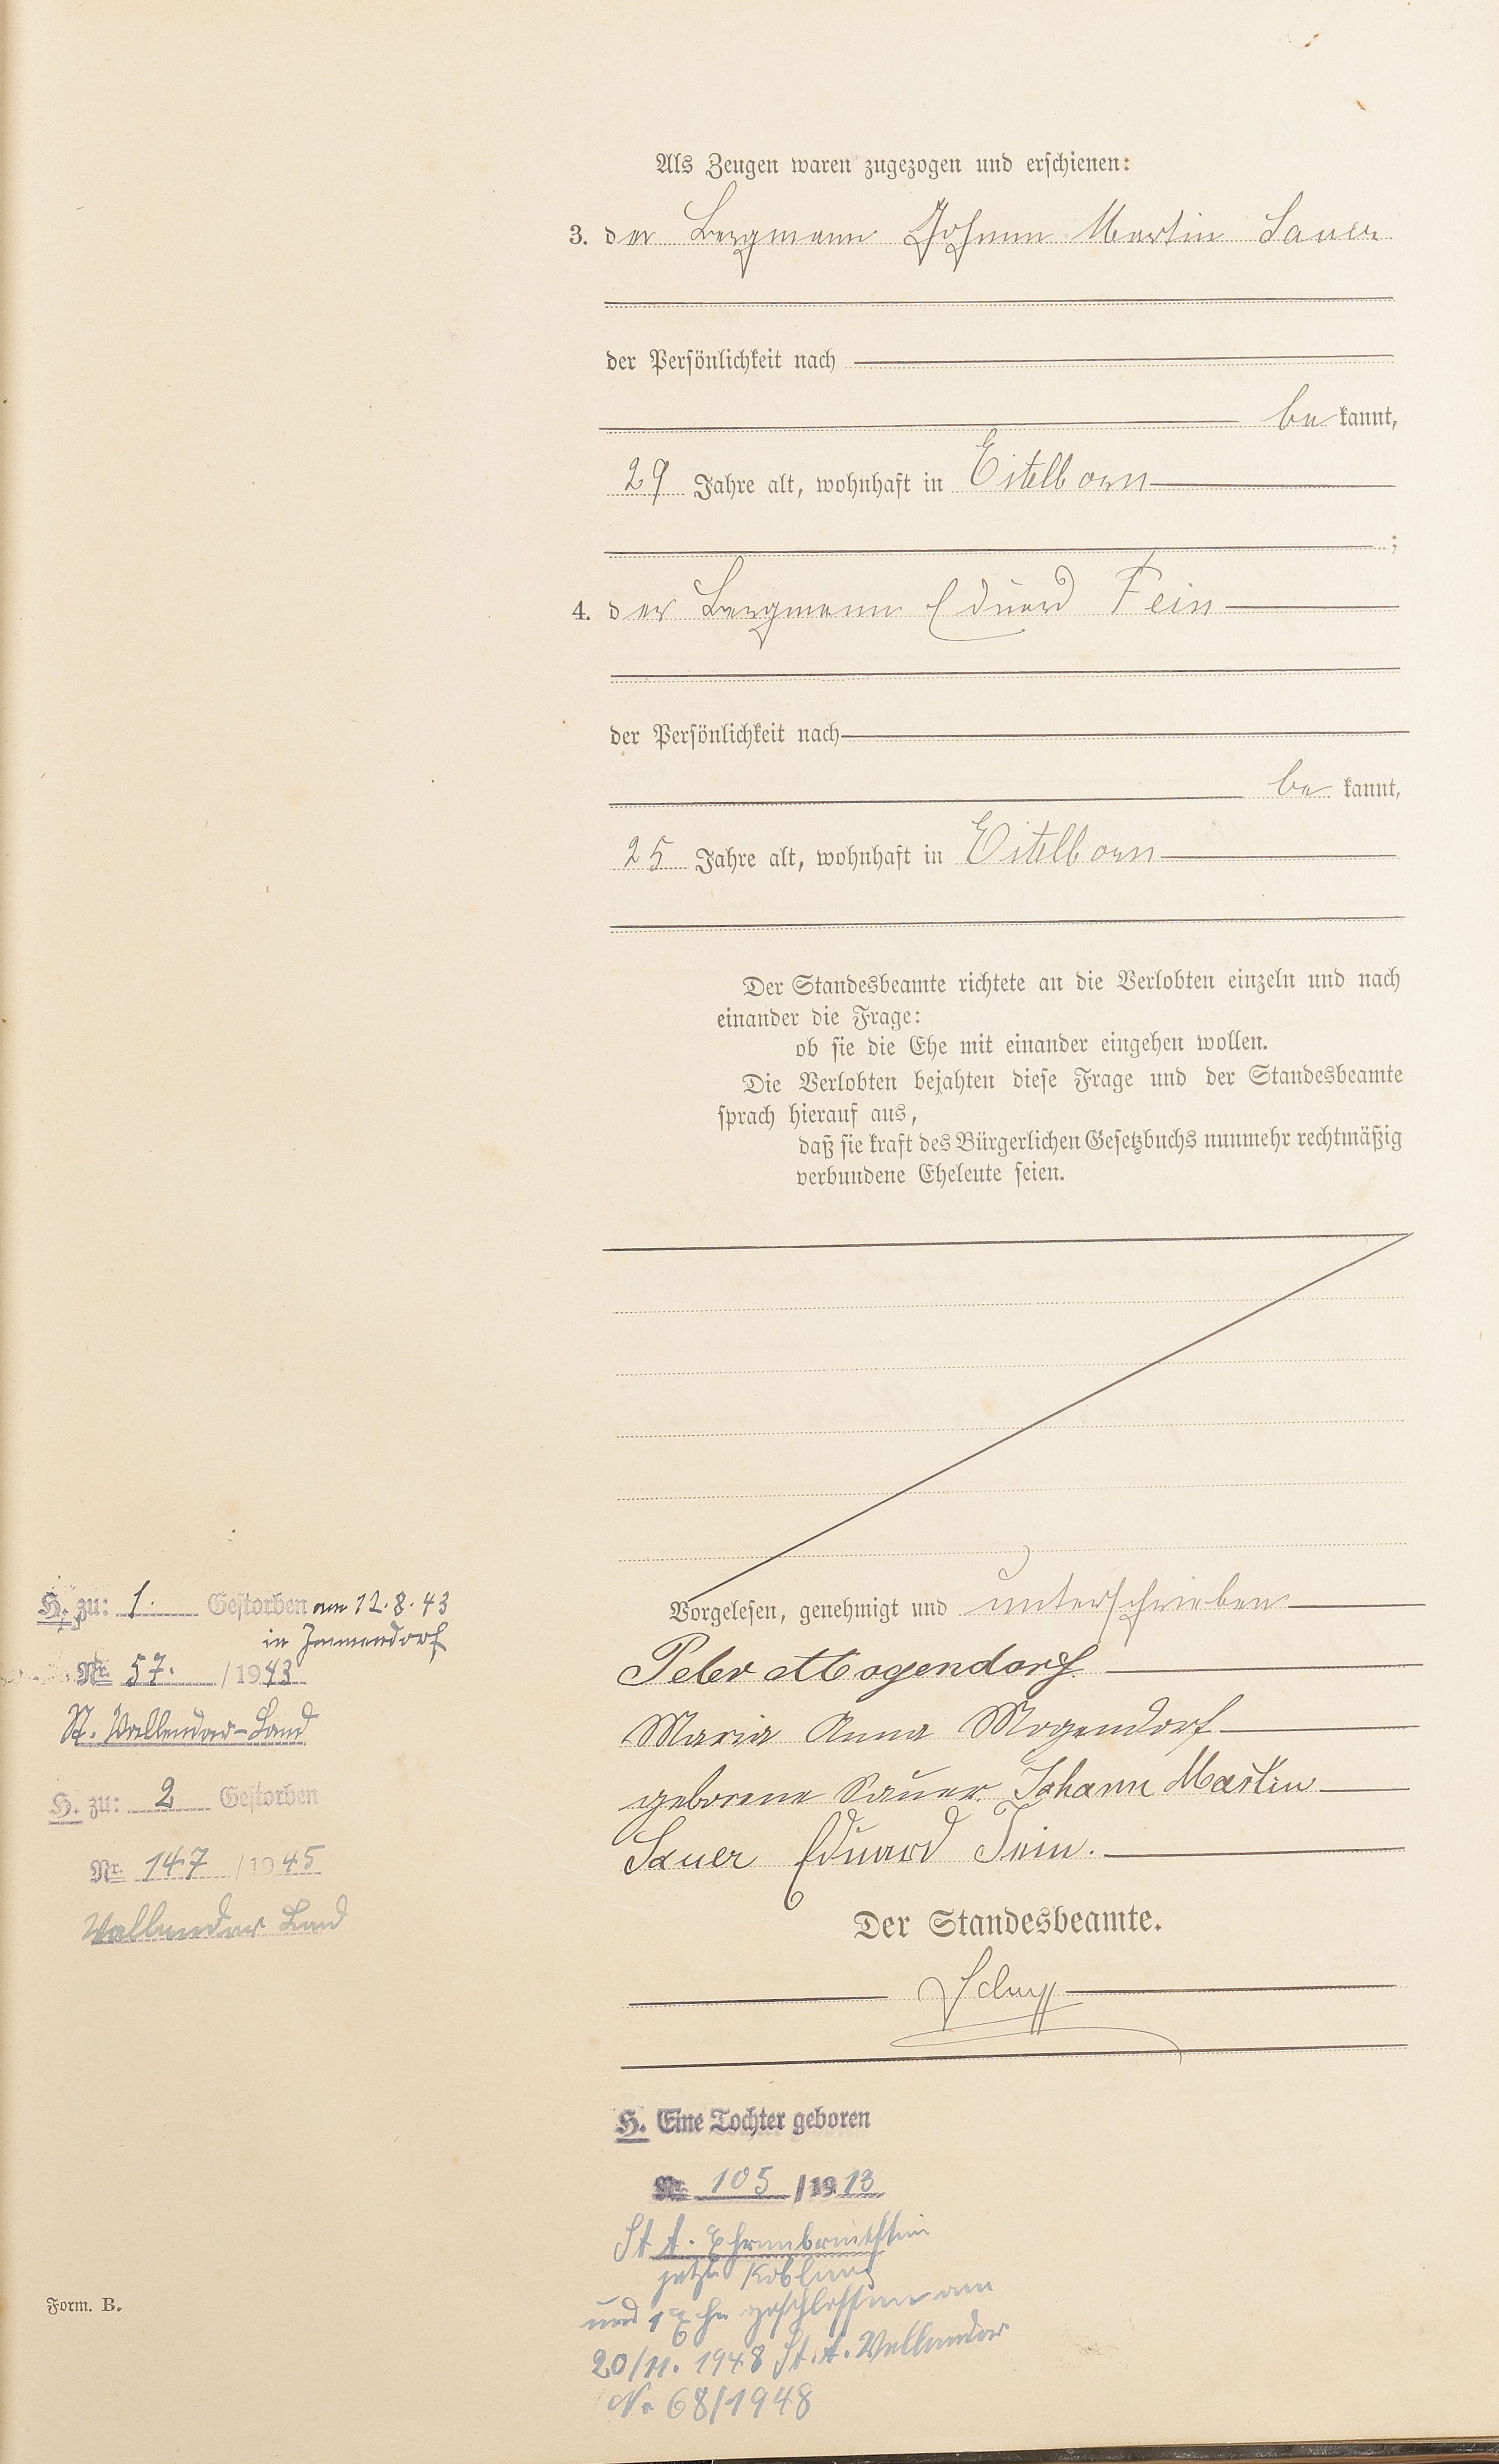 Als Zeugen waren zugezogen und erschienen:
3. der Bergmann Johann Martin Sauer
der Persönlichkeit nach
be kannt,
29 Jahre alt, wohnhaft in Eitelborn
;
4. der Bergmann Eduard Fein
der Persönlichkeit nach
be kannt,
25 Jahre alt, wohnhaft in Eitelborn
Der Standesbeamte richtete an die Verlobten einzeln und nach
einander die Frage:
ob sie die Ehe mit einander eingehen wollen.
Die Verlobten bejahten diese Frage und der Standesbeamte
sprach hierauf aus,
daß sie kraft des Bürgerlichen Gesetzbuchs nunmehr rechtmäßig
verbundene Eheleute seien.
Vorgelesen, genehmigt und unterschrieben
Peter Mogendorf
Maria Anna Mogendorf
geborene Sauer. Johann Martin
Sauer Eduard Fein.
Der Standesbeamte.
H. zu: 1. Gestorben am 12.8.43
in Immendorf
Nr. 57. /1943
St. Vallendar-Land
H. zu: 2 Gestorben
Nr. 147 /1945
Vallendar Land
H. Eine Tochter geboren
Nr. 105 /1913
St. A. Ehrenbreitstein
jetzt Koblenz
und 1 Ehe geschlossen am
20/11. 1948 St. A. Vallendar
Nr 68/1948
Form. B.